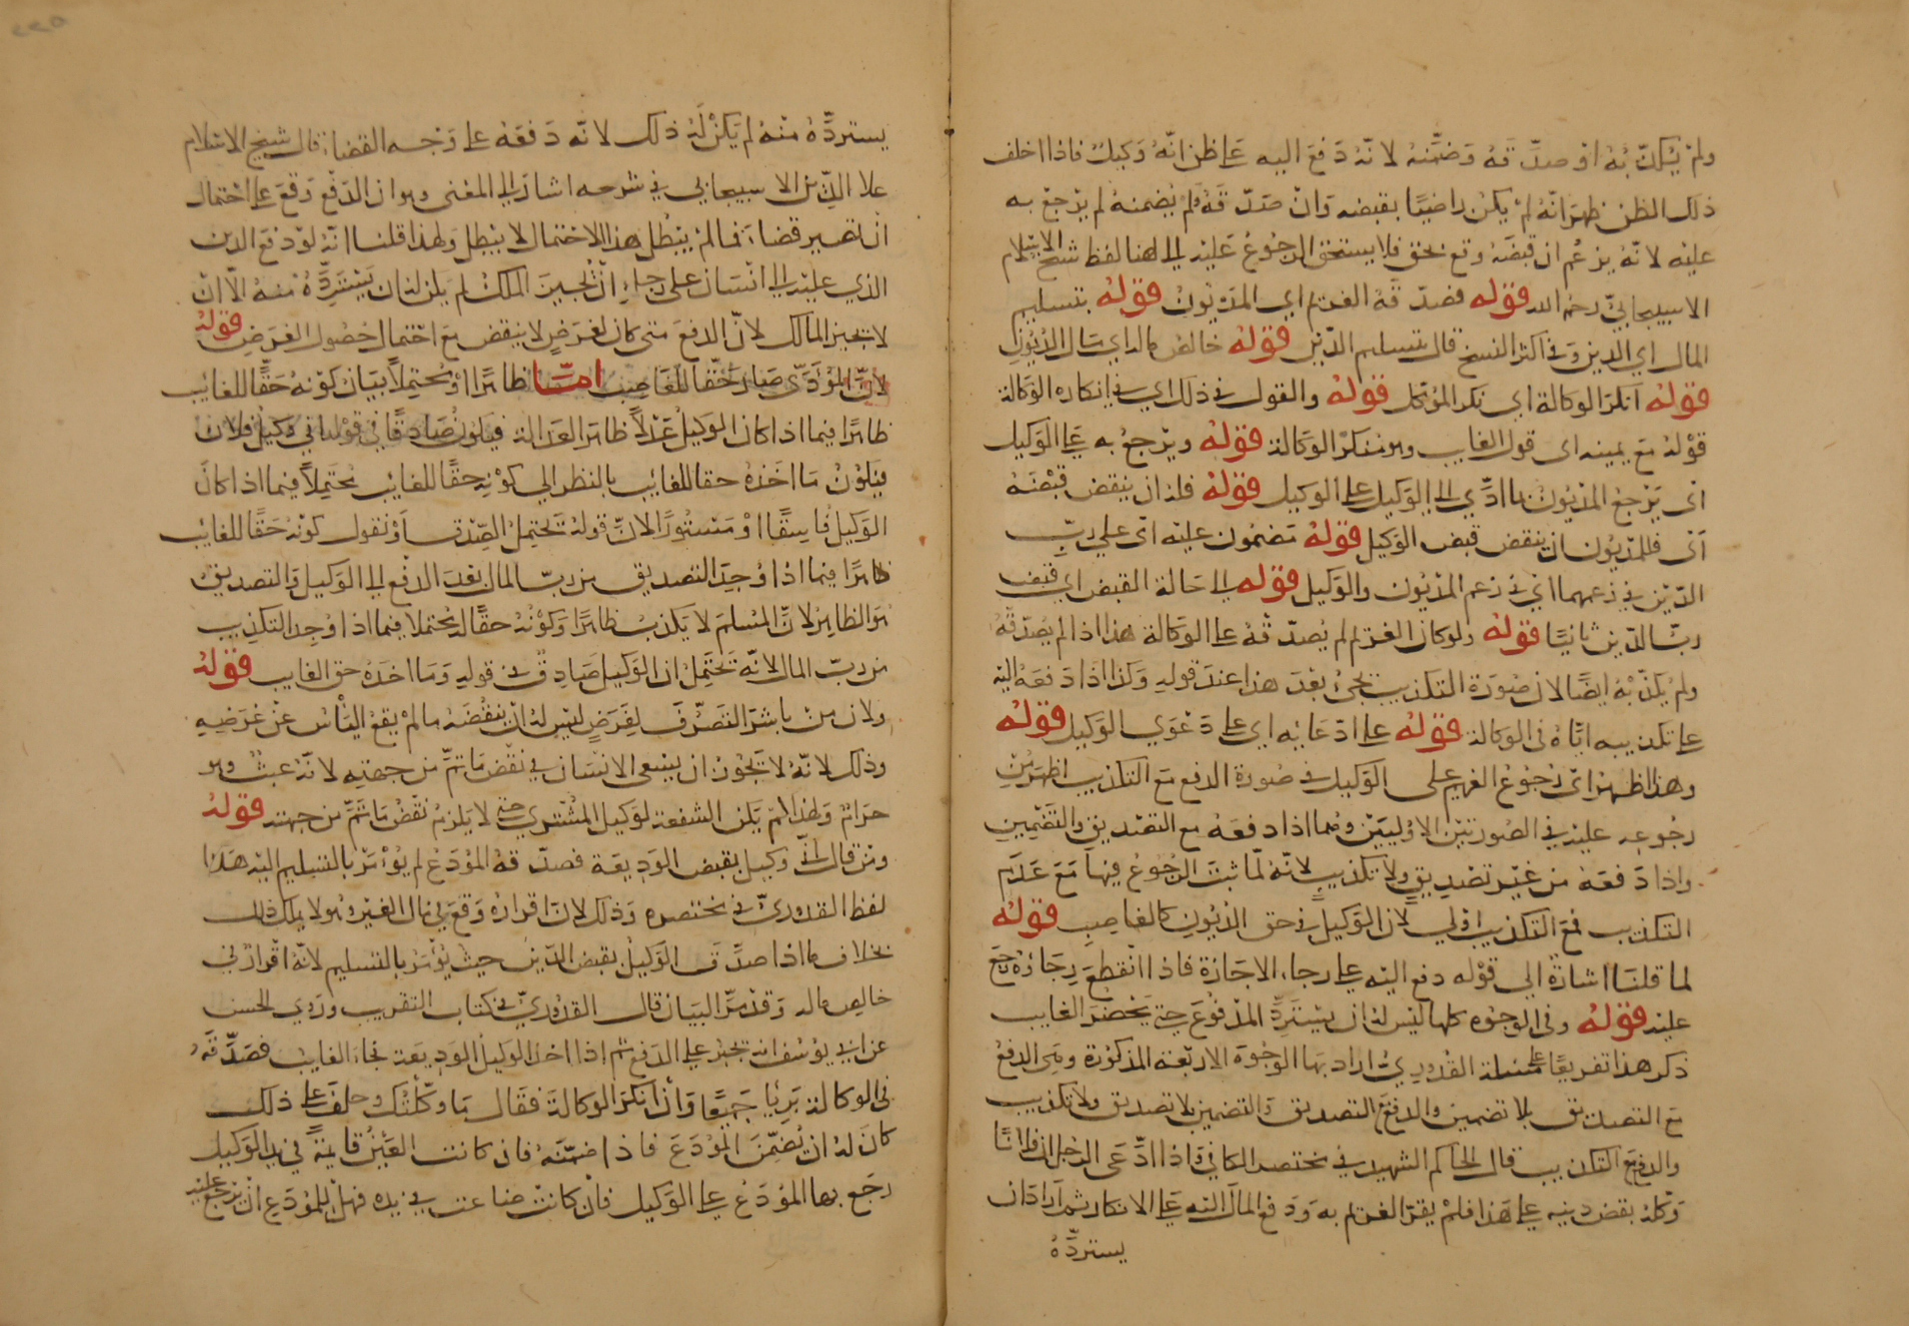 ولم يكذّبه او صدّقه وضمّنه لانه دفع اليه على ظن انّه وكيل فاذا اخلف
ذلك الظن ظهر انّه لم يكن راضيًا بقبضه وان صدّقه ولم يضمنه لم يرجع به
عليه لانه يزعم ان قبضه وقع بحق فلا يستحق الرجوع عليه الى هنا لفظ شيخ الاسلام
الاسبيجابيّ رحمه الله قوله فصدّقه الغريم اي المديون قوله بتسليم
المال اي الدين وفي اكثر النسخ قال بتسليم الدّين قوله خالص ماله اي مال المديون
قوله انكر الوكالة اي نكر الموكل قوله والقول في ذلك اي في انكاره الوكالة
قوله مع يمينه اى قول الغايب وهو منكر الوكالة قوله ويرجع به على الوكيل
اى يرجع المديون بما ادّي الى الوكيل على الوكيل قوله فله ان ينقض قبضه
اى فللمديون ان ينقض قبض الوكيل قوله مضمون عليه اى على ربّ
الدّين في زعمهما اي في زعم المديون والوكيل قوله الى حالة القبض اي قبض
ربّ الدّين ثانيًا قوله ولو كان الغريم لم يصدّقه على الوكالة هذا اذا لم يصدّقه
ولم يكذّبه ايضًا لان صورة التكذيب تجئ بعد هذا عند قوله وكذا اذا دفعه اليه
على تكذيبه ايّاه في الوكالة قوله على ادّعايه اي على دعوي الوكيل قوله
وهذا اظهر اى رجوع الغريم على الوكيل في صورة الدفع مع التكذيب اظهر من
رجوعه عليه في الصورتين الاوليين وهما اذا دفعه مع التصديق والتضمين
واذا دفعه من غير تصديق ولا تكذيب لانه لما ثبت الرجوع فيها مع عدم
التكذيب فمع التكذيب اولي لان الوكيل في حق المديون كالغاصب قوله
لما قلنا اشارة الي قوله دفع اليه على رجاء الاجازة فاذا انقطع رجاؤه رجع
عليه قوله وفي الوجوه كلها ليس له ان يستردّ المدفوع حتى يحضر الغايب
ذكر هذا تفريعًا على مسئلة القدوريّ اراد بها الوجوه الاربعة المذكورة وهي الدفع
مع التصديق بلا تضمين والدفع مع التصديق والتضمين بلا تصديق ولا تكذيب
والدفع مع التكذيب قال الحاكم الشهيد في مختصر الكافي فاذا ادّعى الرجل ان فلانًا
وكله بقبض دينه على هذا فلم يقر الغريم به ودفع المال اليه على الانكار ثم اراد ان
يستردّه
يستردّه منه لم يكن له ذلك لانّه دفعه على وجه القضاء قال شيخ الاسلام
علا الدّين الاسبيجابي في شرحه اشار الى المعنى وهو ان الدفع وقع على احتمال
ان تصير قضاء فما لم يبطل هذا الاحتمال لا يبطل ولهذا قلنا انه لو دفع الدين
الذي عليه الى انسان على رجاء ان يجيز المالك لم يكن له ان يستردّه منه الّا ان
لا يجيز المالك لانّ الدفع متى كان لغرضٍ لا ينقض مع احتمال حصول الغرض قوله
لانّ المؤدّى صار حقّا للغايب امّا ظاهرًا او محتملاً بيان كونه حقًّا للغائب
ظاهرًا فيما اذا كان الوكيل عدلاً ظاهر العدالة فيكون صادقًا في قوله اني وكيل فلان
فيكون ما اخذه حقا للغائب بالنظر الي كونه حقًّا للغائب محتملاً فيما اذا كان
الوكيل فاسقًا او مستورًا لانّ قوله يحتمل الصّدق او نقول كونه حقًّا للغائب
ظاهرًا فيما اذا وجد التصديق من ربّ المال بعد الدفع الى الوكيل والتصديق
هو الظاهر لانّ المسلم لا يكذب ظاهرًا وكونه حقًّا له محتملا فيما اذا وجد التكذيب
من ربّ المال لانّه يحتمل ان الوكيل صادق في قوله وما اخذه حق الغايب قوله
ولان من باشر التصرّف لغرضٍ ليس له ان ينقضه ما لم يقع الياس عن غرضه
وذلك لانّه لا يجوز ان يسعى الانسان في نقض ما تمّ من جهته لانّه عبث وهو
حرام ولهذا لم يكن الشفعة لوكيل المشتري حتى لا يلزم نقض ما تمّ من جهته قوله
ومن قال انّي وكيل بقبض الوديعة فصدّقه المودَع لم يؤمر بالتسليم اليه هذا
لفظ القدوريّ في مختصره وذلك لان اقراره وقع في مال الغير وهو لا يملك ذلك
بخلاف ما اذا صدّق الوكيل بقبض الدّين حيث يؤمر بالتسليم لانّه اقرار في
خالص ماله وقد مرّ البيان قال القدوريّ في كتاب التقريب وروي الحسن
عن ابي يوسف انه يجبر على الدفع ثم اذا اخذ الوكيل الوديعة فجاء الغايب فصدّقه
في الوكالة بريا جميعًا وان انكر الوكالة فقال ما وكّلتك وحلف على ذلك
كان له ان يضمّن المودَع فاذا ضمّنه فان كانت العين قايمة في يد الوكيل
رجع بها المودَع على الوكيل فان كانت ضاعت في يده فهل للمودَع ان يرجع عليه